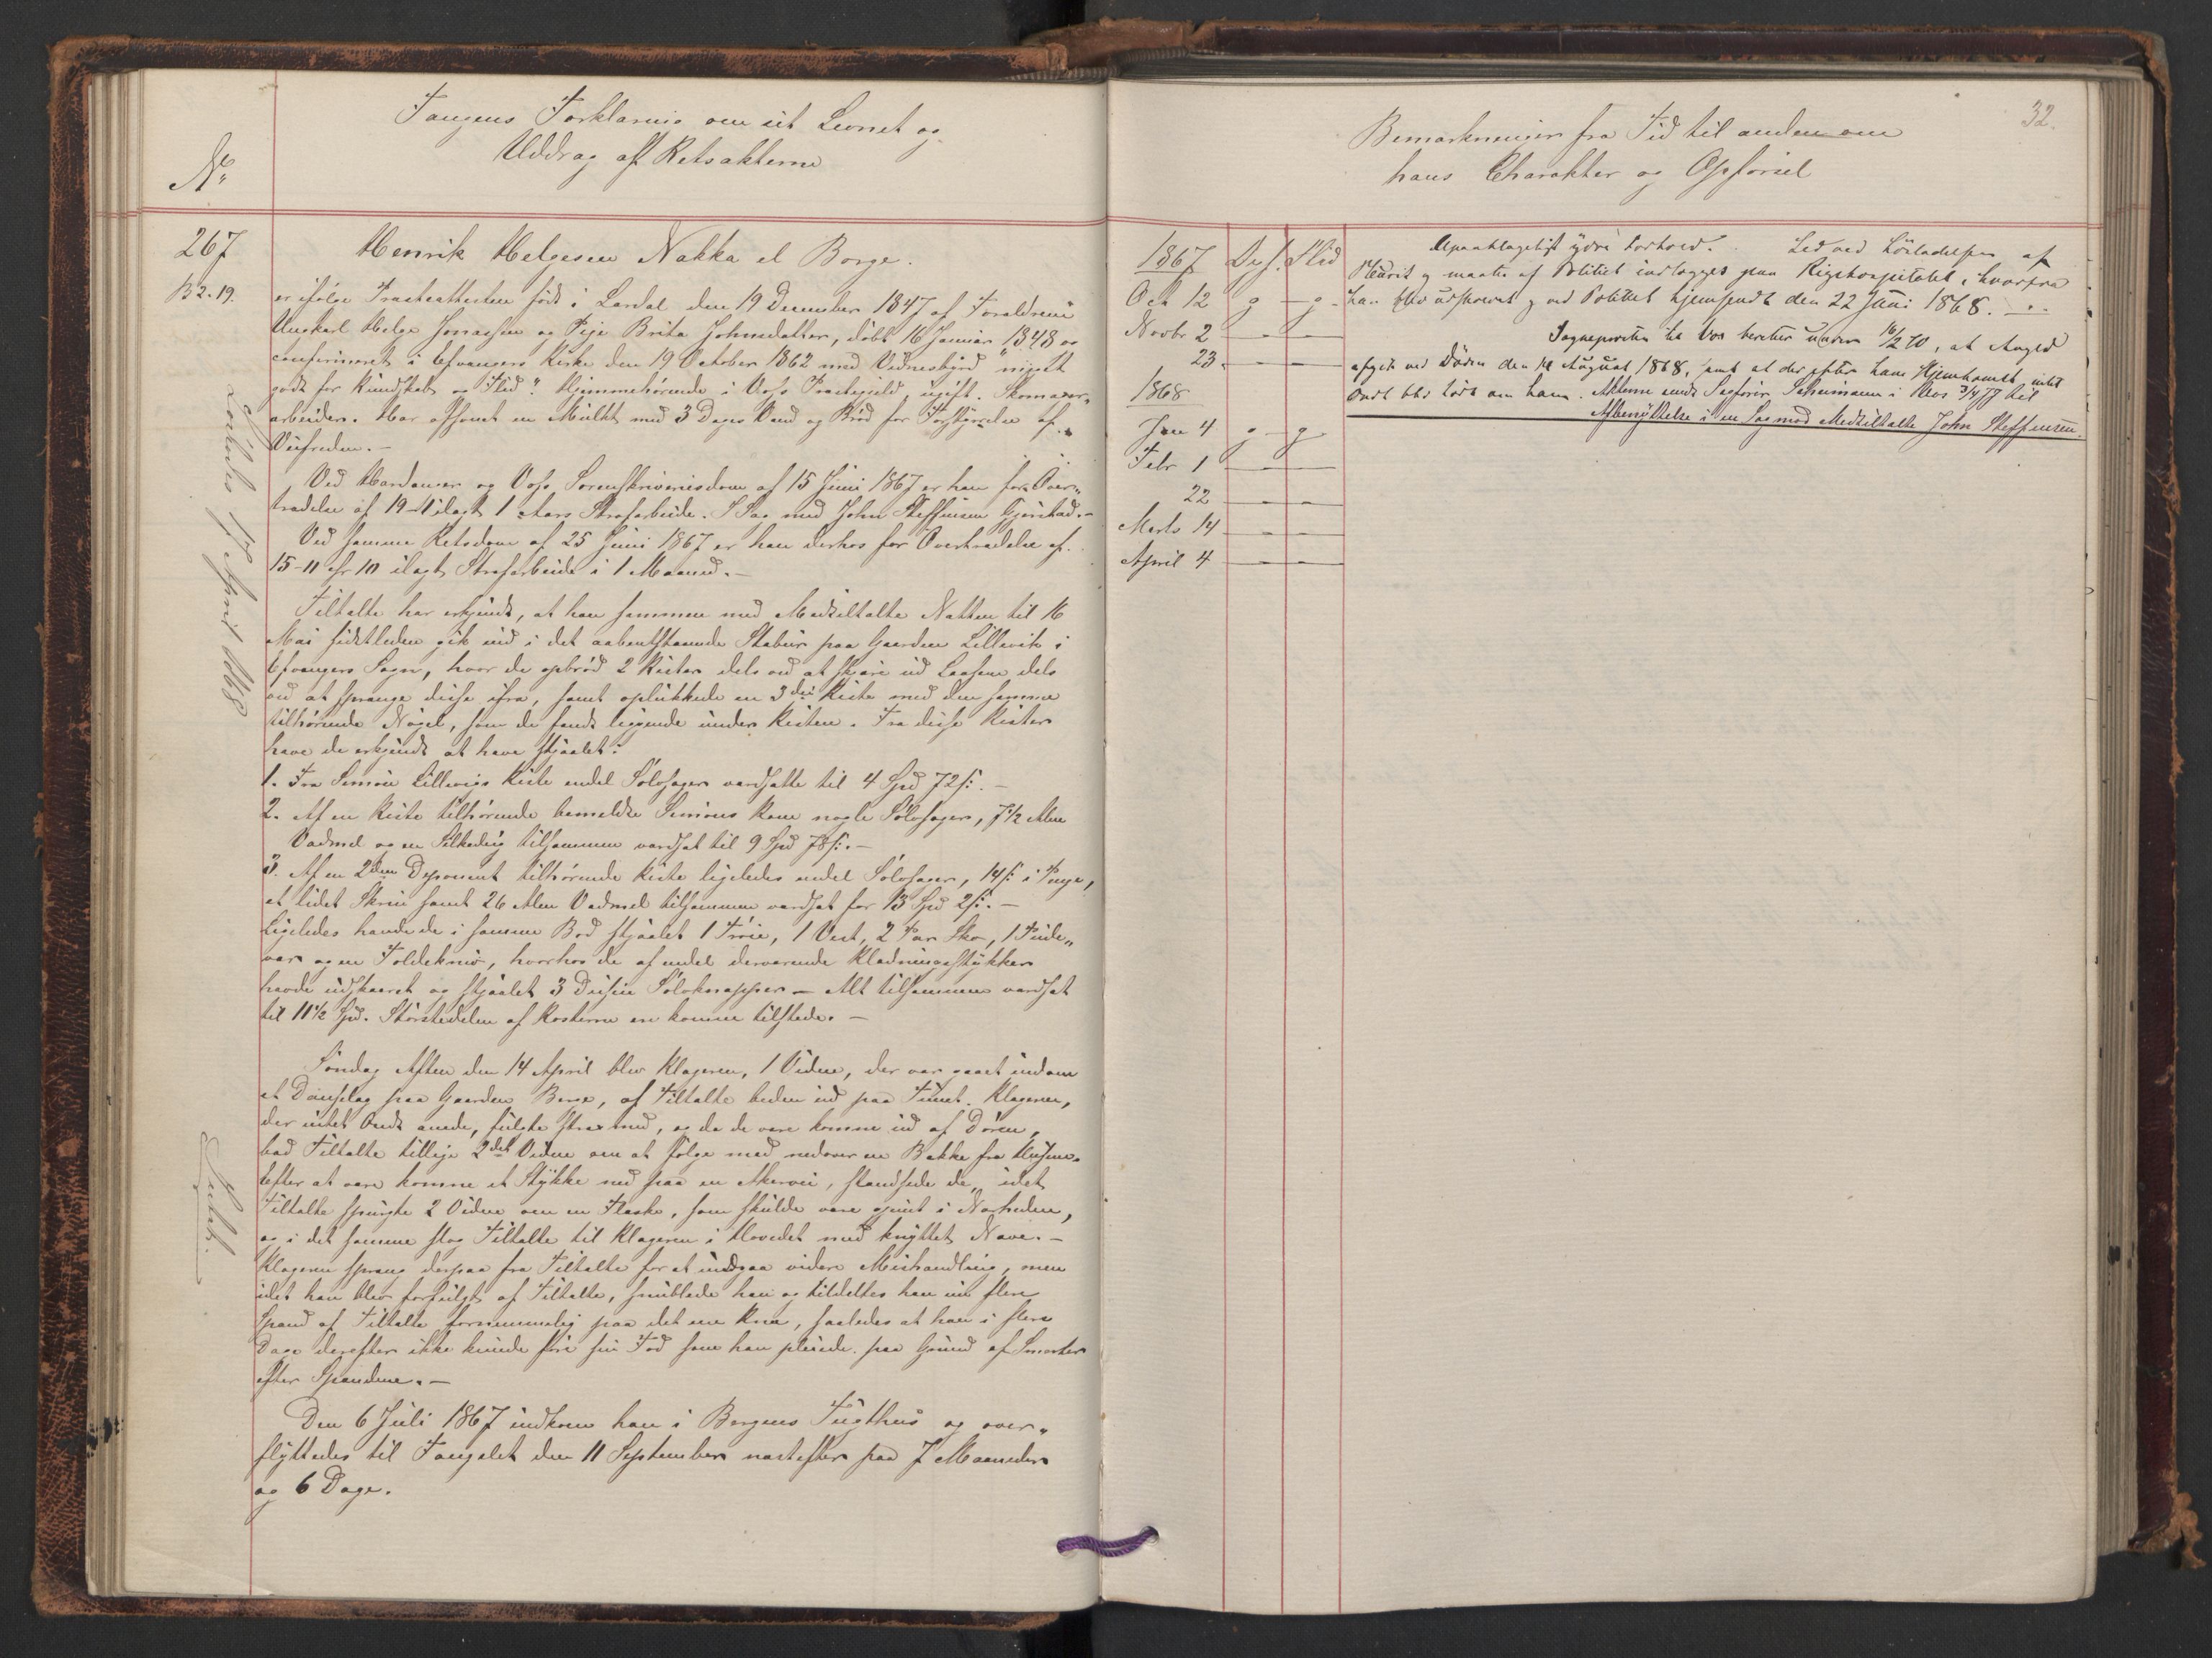 Fangens Forklaring om sit Levnet og
Uddrag af Retsakterne
No
267
B 2.19.
Løslades 17 April 1868
Henrik Helgesen Nakka el Borge.
er ifølge Præsteattesten født i Lærdal den 19 December 1847 af Forældrene
Ungkarl Helge Jonassen og Pige Brita Johnsdatter, døbt 16 Januar 1848 og
confirmeret i Evangers Kirke den 19 October 1862 med Vidnesbyrd "meget
godt for Kundskab og Flid". Hjemmehørende i Voss Præstegjeld, ugift. Skomager-
arbeider. Har afsonet en Mulkt med 3 Dages Vand og Brød for Forstyrrelse af
Veifreden.-
Ved Hardanger og Voss Sorenskriveriesdom af 15 Juni 1867 er han for Over-
trædelse af 19-4 ilagt 1 Aars Strafarbeide. I Sag med John Steffensen Gjerstad.-
Ved samme Retsdom af 25 Juni 1867 er han derhos for Overtrædelse af
15-11 cfr 10 ilagt Strafarbeide i 1 Maaned.-
Tiltalte har erkjendt, at han sammen med Medtiltalte Natten til 16
Mai sidstleden gik ind i det aabentstaaende Stabur paa Gaarden Lillevik i
Evangers Sogn, hvor de opbrød 2 Kister dels ved at skjære ud Laasene dels
ved at sprænge disse ifra, samt oplukkede en 3die Kiste med den samme
tilhørende Nøgel, som de fandt liggende under Kisten. Fra disse Kister
have de erkjendt at have stjaalet:
1. Fra Simon Lillevigs Kiste endel Sølvsager værdsatte til 4 Spd 72 ſ:.-
2. Af en Kiste tilhørende bemeldte Simons Kone nogle Sølvsager, 7½ Alen
Vadmel og en Silkedug tilsammen værdsat til 9 Spd 78 ſ:.-
3. Af en 2den Deponent tilhørende Kiste ligeledes endel Sølvsager, 14 ſ: i Penge,
et lidet Skrin samt 26 Alen Vadmel tilsammen værdsat for 13 Spd 2 ſ:.-
Ligeledes havde de i samme Bod stjaalet 1 Trøie, 1 Vest, 2 Par Sko, 1 Pude-
vær og en Foldekniv, hvorhos de af endel derværende Klædningsstykker
havde udskaaret og stjaalet 3 Dusin Sølvknapper - Alt tilsammen værdsat
til 11½ Spd. Størstedelen af Kosterne ere komne tilstede.-
Søndag Aften den 14 April blev Klageren, 1 Vidne, der var gaaet indom
et Dandselag paa Gaarden Berge, af Tiltalte beden ud paa Tunet. Klageren,
der intet Ondt anede, fulgte strax med, og da de vare komne ud af Døren,
bad Tiltalte tillige 2det Vidne om at følge med nedover en Bakke fra Husene.
Efter at være komne et Stykke ned paa en Akervei, standsede de, idet
Tiltalte spurgte 2 Vidne om en Flaske, som skulde være gjemt i Nærheden,
og i det samme slog Tiltalte til Klageren i Hovedet med knyttet Næve.-
Klageren sprang derpaa fra Tiltalte for at undgaa videre Mishandling, men
idet han blev forfulgt af Tiltalte, snublede han og tildeltes han nu flere
Spænd af Tiltalte fornemmelig paa det ene Knæ, saaledes at han i flere
Dage derefter ikke kunde føre sin Fod som han pleiede paa Grund af Smerter
efter Spændene.-
Den 6 Juli 1867 indkom han i Bergens Tugthus og over-
flyttedes til Fængslet den 11 September næstefter paa 7 Maaneder
og 6 Dage.
32.
Bemærkninger fra Tid til anden om
hans Charakter og Opførsel
1867 Opf. Flid
Oct 12 g - g -
Novbr 2 - -
23. - -
1868
Jan 4 g - g
Febr 1 - -
22 - -
Marts 14 - -
April 4 - -
Upaaklageligt ydre Forhold. Led ved Løsladelsen af
Pleurit og maatte af Politiet indlægges paa Rigshospitalet, hvorfra
han blev udskrevet og ved Politiet hjemsendt den 22 Juni 1868.
Sognepresten til Vos beretter under 16/2 70, at Angjld
afgik ved Døden den 14 August 1868, samt at der efter hans Hjemkomst intet
ondt blev hørt om ham. Akterne sendt Sagfører Scheimann i Vos 3/4 77 til
Afbenyttelse i en Sag mod Medtiltalte John Steffensen.